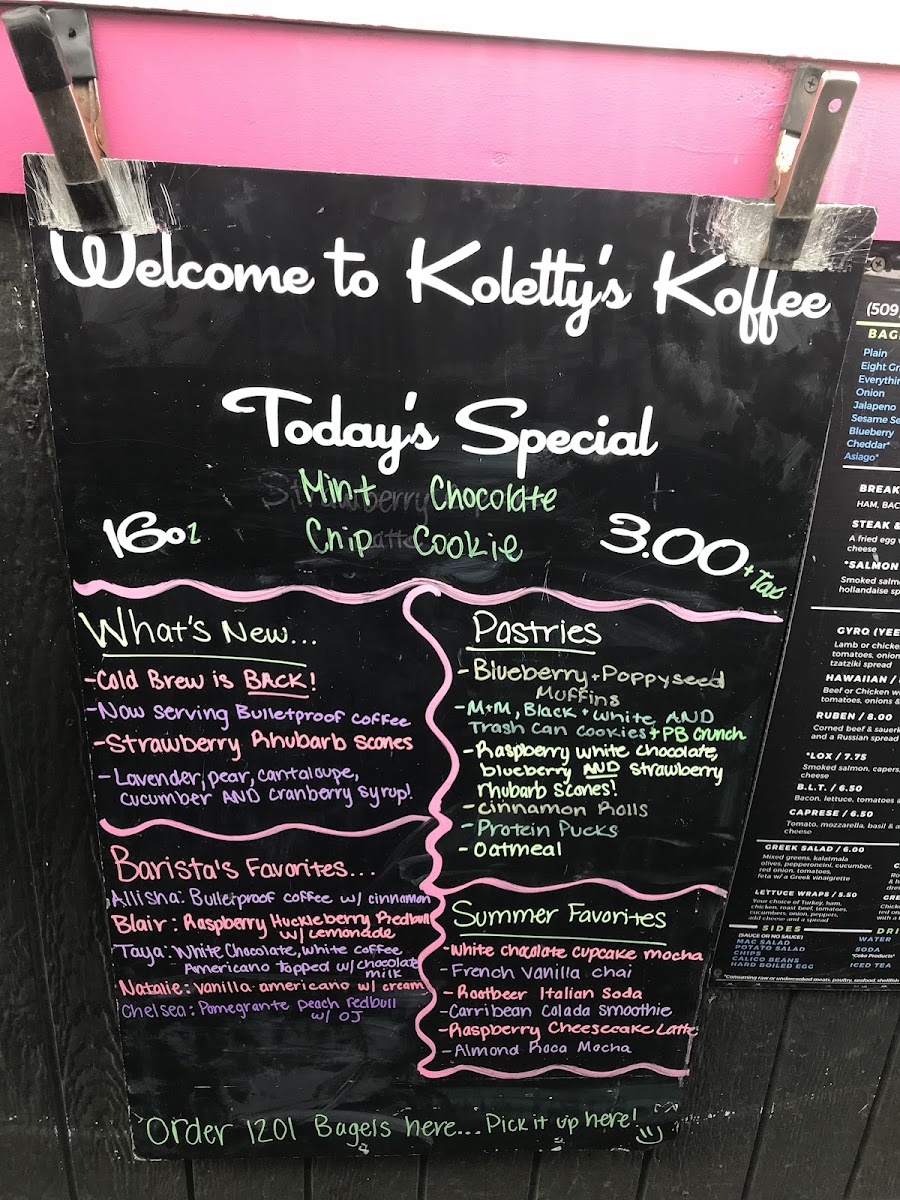 Welcome to Koletty's Koffee
Today's Special
Mint Chocolate
Chip Cookie
16oz
3.00 + Tax
What's New...
-Cold Brew is BACK!
-Now serving Bulletproof coffee
-Strawberry Rhubarb scones
-Lavender, pear, cantaloupe,
cucumber AND cranberry syrup!
Barista's Favorites...
Allisha: Bulletproof coffee w/ cinnamon
Blair: Raspberry Huckleberry Redbull
w/ Lemonade
Taya: White Chocolate, white coffee,
Americano topped w/ chocolate
milk
Natalie: vanilla americano w/ cream
Chelsea: Pomegrante peach redbull
w/ OJ
Pastries
-Blueberry + Poppyseed
Muffins
-M+M, Black + White AND
Trash Can cookies + PB crunch
-Raspberry white chocolate,
blueberry AND strawberry
rhubarb scones!
-cinnamon Rolls
-Protein Pucks
-Oatmeal
Summer Favorites
-White chocolate cupcake mocha
-French vanilla chai
-Rootbeer Italian Soda
-Carribean Colada smoothie
-Raspberry Cheesecake Latte
-Almond Roca Mocha
Order 1201 Bagels here... Pick it up here!
(509)
BAG
Plain
Eight Gr
Everythin
Onion
Jalapeno
Sesame Se
Blueberry
Cheddar*
Asiago*
BREAK
HAM, BAC
STEAK &
A fried egg
cheese
*SALMON
Smoked salm
hollandaise sp
GYRO (YEE
Lamb or chicke
tomatoes, onion
tzatziki spread
HAWAIIAN /
Beef or Chicken w
tomatoes, onions &
RUBEN / 8.00
Corned beef & sauerk
and a Russian spread
*LOX / 7.75
Smoked salmon, capers,
cheese
B.L.T. / 6.50
Bacon, lettuce, tomatoes
CAPRESE / 6.50
Tomato, mozzarella, basil & a
cheese
GREEK SALAD / 6.00
Mixed greens, kalamata
olives, pepperoncini, cucumber,
red onion, tomatoes,
feta w/ a Greek vinaigrette
LETTUCE WRAPS / 5.50
Your choice of Turkey, ham,
chicken, roast beef, tomatoes,
cucumbers, onion, peppers,
add cheese and a spread
SIDES
(SAUCE OR NO SAUCE)
MAC SALAD
POTATO SALAD
CHIPS
CALICO BEANS
HARD BOILED EGG
DRI
WATER
SODA
*Coke Products*
ICED TEA
*Consuming raw or undercooked meats, poultry, seafood, shellfish